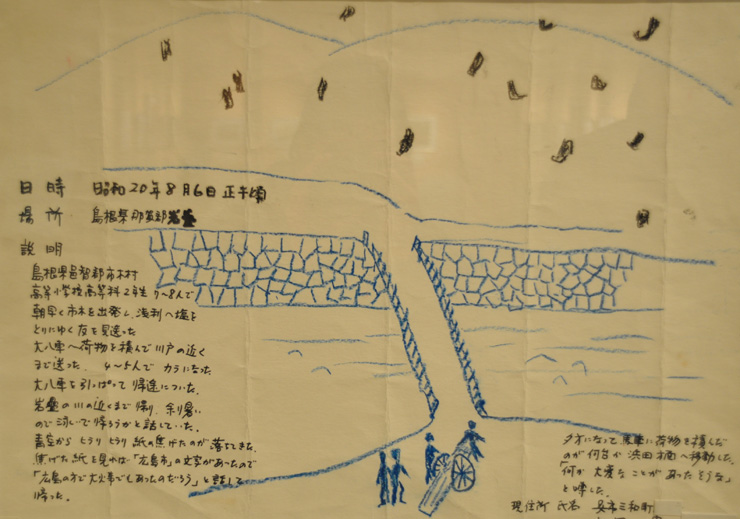 日時 昭和20年8月6日正午頃
場所 島根県那賀郡
説明
島根県邑智郡市木村
高等小学校高等科2年生 7〜8人で
朝早く市木を出発し、浅利へ塩を
とりにゆく友を見送った
大八車へ荷物を積んで川戸の近く
まで送った。 4〜5人で カラになった
大八車を引っぱって 帰途についた。
岩盤の川の近くまで帰り、余り暑い
ので泳いで帰ろうかと話していた。
青空から ヒラリ ヒラリ 紙の焦げたのが 落ちてきた。
焦げた紙を見れば「広島市」の文字があったので
「広島の方で大火事でもあったのだろう」と話して
帰った。
夕方になって 馬車に荷物を積んだ
のが何台か 浜田 へ移動した。
「何か 大変な ことが あったそうな」
と噂した。
現住所 氏名 安市三和町